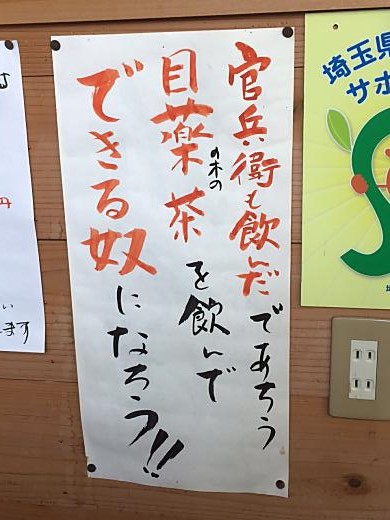 官兵衛も飲んだであろう
目薬の木の茶を飲んで
できる奴になろう!!
埼玉県
サポ
円
い
ます